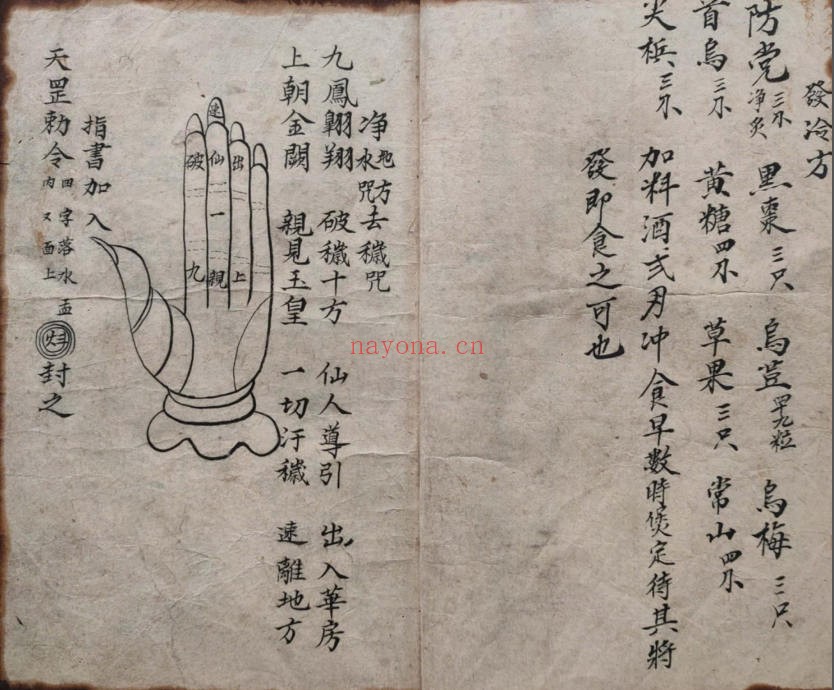 發冷方
防党三不净炙 黑棗三只 烏荳四十九粒 烏梅三只
首烏三不 黄糖四不 草果三只 常山四不
尖槟三不 加料酒弍刃冲食早數時煲定待其將
發即食之可也
净地方去穢咒
水咒
九鳳翱翔 破穢十方 仙人導引 出入華房
上朝金闕 親見玉皇 一切汙穢 速離地方
速
破 仙 出
一
九 親 上
指書加入
天罡勅令 田字落水盂内又面上 封之
nayona.cn